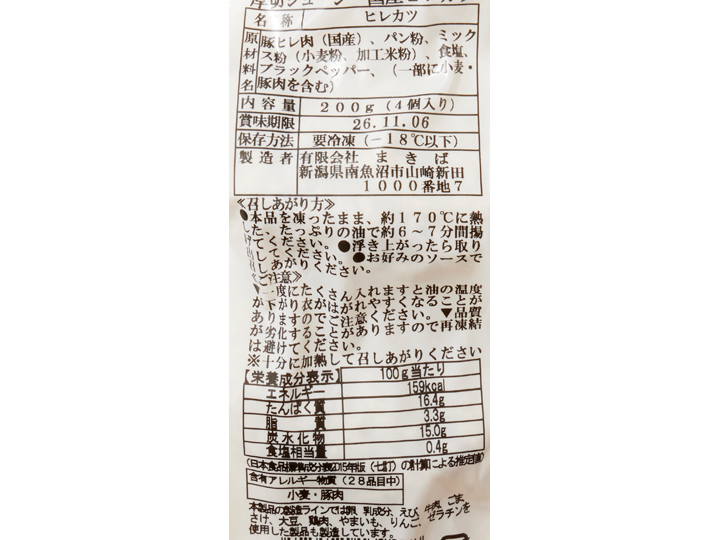 名　称　ヒレカツ
原材料名　豚ヒレ肉（国産）、パン粉、ミック
ス粉（小麦粉、加工米粉）、食塩、
ブラックペッパー、（一部に小麦・
豚肉を含む）
内容量　２００ｇ（４個入り）
賞味期限　26.11.06
保存方法　要冷凍（－１８℃以下）
製造者　有限会社　まきば
新潟県南魚沼市山崎新田
１０００番地７
≪召しあがり方≫
●本品を凍ったまま、約１７０℃に熱
した、たっぷりの油で約６～７分間揚
げてください。●浮き上がったら取り
出してください。●お好みのソースで
召しあがりください。
≪ご注意≫
▼一度にたくさん入れますと油の温度
が下がり衣がはがれやすくなることが
ありますのでご注意ください。▼品質
が劣化することがありますので再凍結
は避けてください。
※十分に加熱して召しあがりください
【栄養成分表示】　100ｇ当たり
エネルギー　159kcal
たんぱく質　16.4g
脂　質　3.3g
炭水化物　15.0g
食塩相当量　0.4g
（日本食品標準成分表2015年版（七訂）の計算による推定値）
含有アレルギー物質（２８品目中）
小麦・豚肉
本製品の製造ラインでは卵、乳成分、えび、牛肉、ごま、
さけ、大豆、鶏肉、やまいも、りんご、ゼラチンを
使用した製品も製造しています。